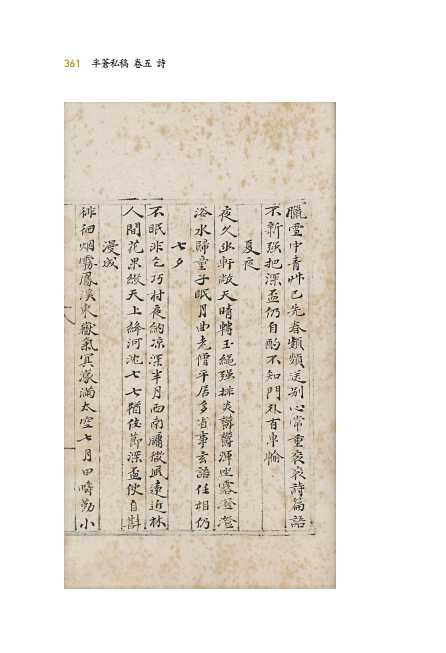 361 半蒼私稿 卷五 詩
臘雪中青艸已先春類類送別心常重衮衮詩篇語
不新强把深盃仍自酌不知門外百車輪
夏夜
夜久坐軒敞天晴轉玉繩强排炎欝欝源坐露登登
浴水歸童子眠月曲老僧平居多省事玄語任相仍
七夕
不眠非乞巧村夜納凉深半月西南牖微風遠近林
人間花果緻天上絳河沈七七猶佳節深盃便自斟
漫成
徘徊烟霧鳳溪東嶽氣冥濛滿太空七月田疇勤小